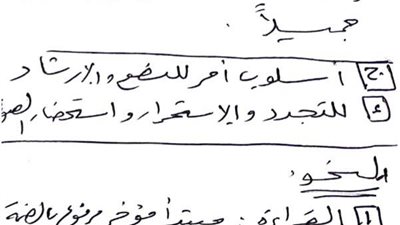 جميلاً.
ج أسلوب أمر للنصح والإرشاد
د للتجدد والاستمرار واستحضار
النحو:
أ القراءة: مبتدأ مؤخر مرفوع بالضمة